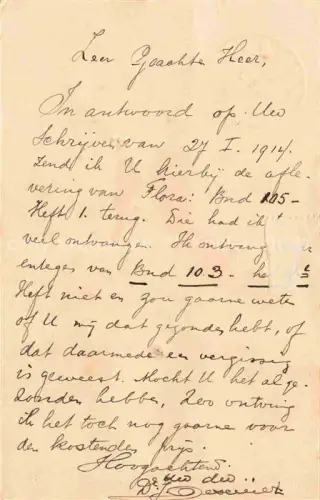 Zeer Geachte Heer,
In antwoord op Uw
Schrijven van 27 I. 1914.
Zend ik U hierbij de afle-
vering van Flora: Bnd 105-
Heft 1. terug. Die had ik
veel ontvangen. Ik ontving
enteges van Bnd 103 -
Heft niet en zou gaarne weten
of U mij dat gezonden hebt, of
dat daarmede een vergissing
is geweest. Mocht U het al ge-
zonden hebben, Zoo ontving
ik het toch nog gaarne voor
den kostenden prijs.
Hoogachtend
Uw dw
Dr J.